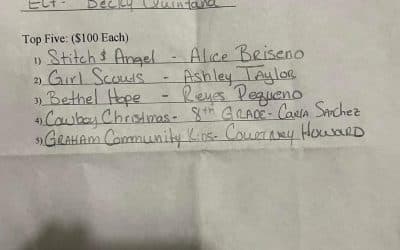 ELF - Becky Quintana
Top Five: ($100 Each)
1) Stitch & Angel - Alice Briseno
2) Girl Scouts - Ashley Taylor
3) Bethel Hope - Reyes Pequeno
4) Cowboy Christmas - 8th Grade - Carla Sanchez
5) Graham Community Kids - Courtney Howard